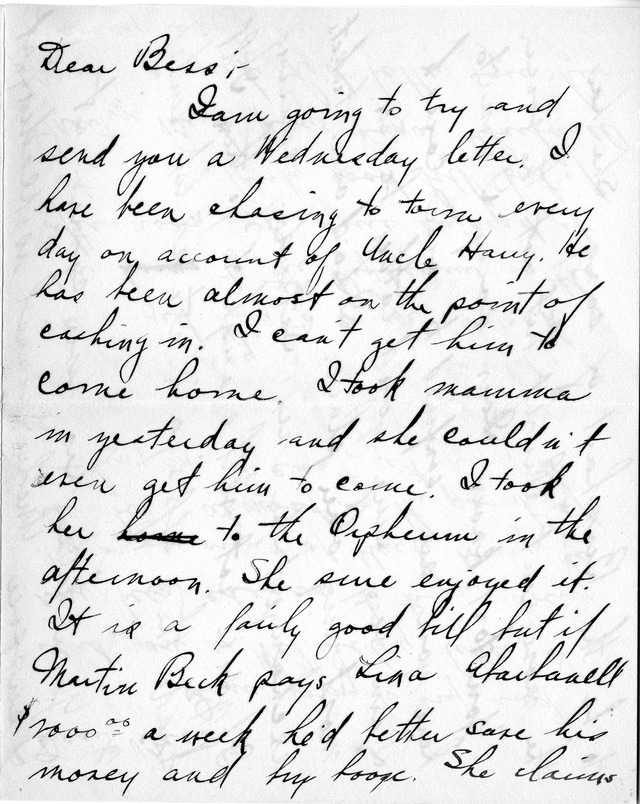 Dear Bess;-
I am going to try and
send you a Wednesday letter. I
have been chasing to town every
day on account of Uncle Harry. He
has been almost on the point of
cashing in. I can't get him to
come home. I took mamma
in yesterday and she couldn't
even get him to come. I took
her home to the Orpheum in the
afternoon. She sure enjoyed it.
It is a fairly good bill but if
Martin Beck pays Lina Abarbanell
a week he'd better save his
money and buy booze. She claims